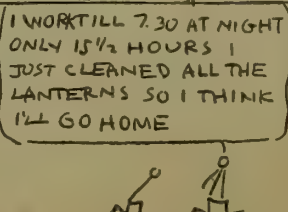 I WORK TILL 7.30 AT NIGHT
ONLY 15 1/2 HOURS I
JUST CLEANED ALL THE
LANTERNS SO I THINK
I'LL GO HOME